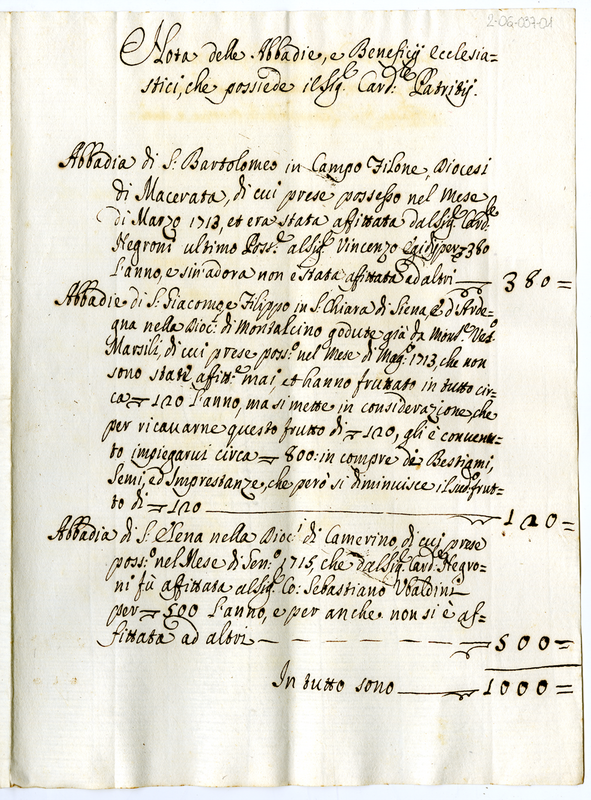 2-06-037-01
Nota delle Abbadie, e Beneficij Ecclesia=
stici, che possiede il Sig.r Card.le Patritij.
Abbadia di S. Bartolomeo in Campo Filone, Diocesi
di Macerata, di cui prese possesso nel Mese
di Marzo 1713, et era stata affittata dal Sig.r Card.le
Negroni ultimo Poss.re al Sig.r Vincenzo Egidij per 380
l'anno, e sin'adora non è stata affittata ad altri 380=
Abbadie di S. Giacomo, e Filippo in S. Chiara di Siena, e d'Arde=
gna nella Dioc. di Montalcino godute già da Mons.r
Marsili, di cui prese poss.o nel Mese di Mag.o 1713, che non
sono state affitt.e mai, et hanno fruttato in tutto cir=
ca 120 l'anno, ma si mette in considerazione, che
per ricavarne questo frutto di 120, gli è convenu=
to impiegarvi circa 800: in compre de Bestiami,
Semi, ed Imprestanze, che però si diminuisce il sud.o frut=
to di 120 120=
Abbadia di S. Elena nella Dioc.i di Camerino, di cui prese
poss.o nel Mese di Gen.o 1715, che dal Sig.r Card.le Negro=
ni fù affittata al Sig.r Co: Sebastiano Ubaldini
per 500 l'anno, e per anche non si è af=
fittata ad altri 500=
In tutto sono 1000=